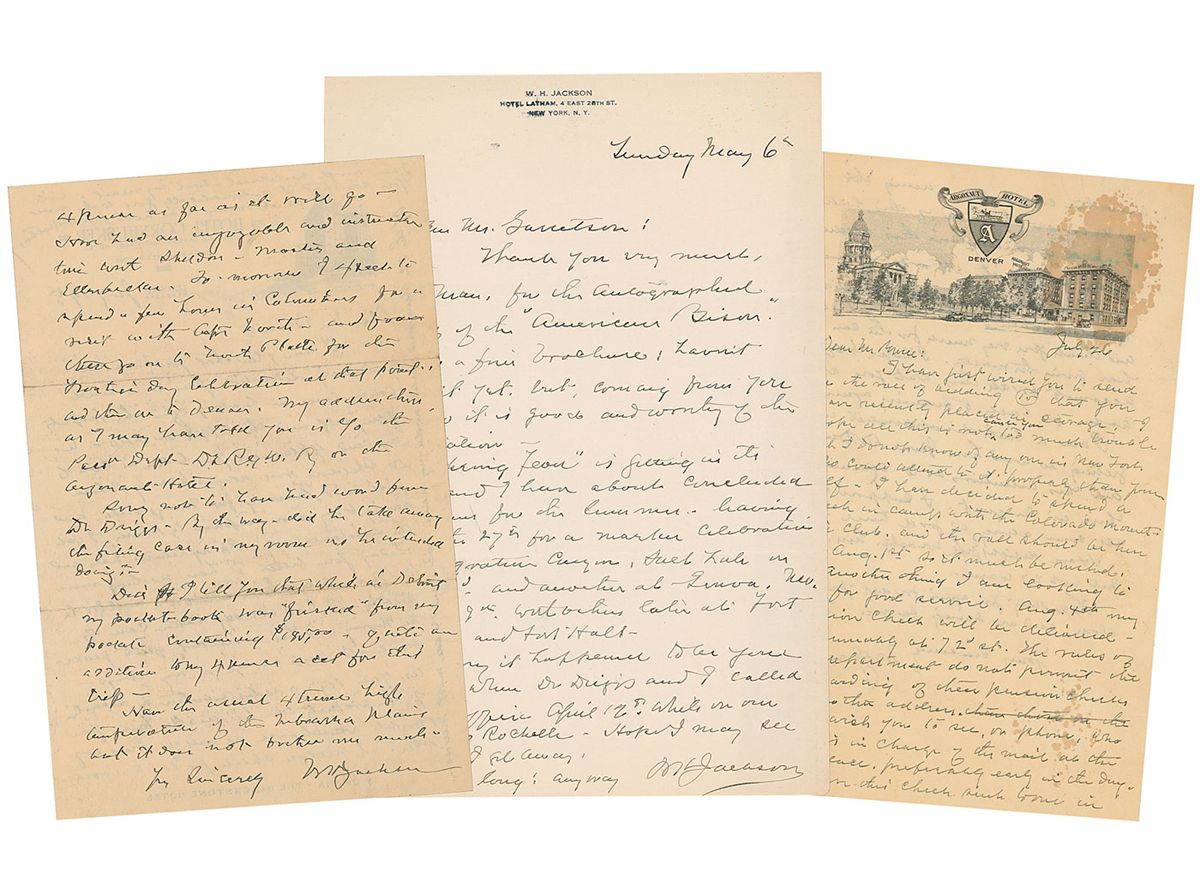 as far as it will go –
Have had an enjoyable and instructive
time with Sheldon – Martin and
To-morrow I expect to
spend a few hours in Columbus for a
visit with Capt North – and from
there go on to North Platte for the
day Celebration at that point,
and then on to Denver. My address there,
as I may have told you is c/o the
Dept. D & R.G.W. Ry or the
Argonaut Hotel.
Sorry not to have had word from
Dr Driggs. By the way – did he take away
the filing case in my room as he intended
doing?
Did I tell you that while in Detroit
my pocket-book was "frisked" from my
pocket containing $185.00 – quite an
addition to my expense acct for that
trip –
Have the usual extreme high
temperature of the Nebraska plains
but it does not bother me much –
Sincerely WHJackson
W. H. JACKSON
HOTEL LATHAM, 4 EAST 28TH ST.
NEW YORK, N. Y.
Sunday May 6th
Mr. Garretson:
Thank you very much,
for the Autographed
of the "American Bison."
a fine brochure; haven't
it yet, but, coming from you
it is good and worthy of the
is getting in its
and I have about concluded
for the Summer – leaving
27th for a marker Celebration
Canyon, Salt Lake on
and another at Genoa, Nev.
with others later at Fort
and Fort Hall –
it happened to be gone
when Dr Driggs and I called
April 12th while on our
Rochelle – Hope I may see
I get away.
long! anyway WHJackson
ARGONAUT HOTEL
A
DENVER
July 26
Dear Mr Bruce:
I have just wired you to send
the roll of bedding that you
recently placed in storage –
all this is not too much trouble
cause you
I do not know of any one in New York
who could attend to it properly than your
self – I have decided to spend a
week in camp with the Colorado Mountain
club, and the roll should be here
Aug. 1st so it must be
another thing I am looking to
for your service. Aug. 4th my
pension check will be delivered –
at 72d st. The rules of
department do not permit the
forwarding of these pension checks
to other address.
wish you to see, or phone, who
is in charge of the mail at the
preferably early in the day –
this check sent to me in